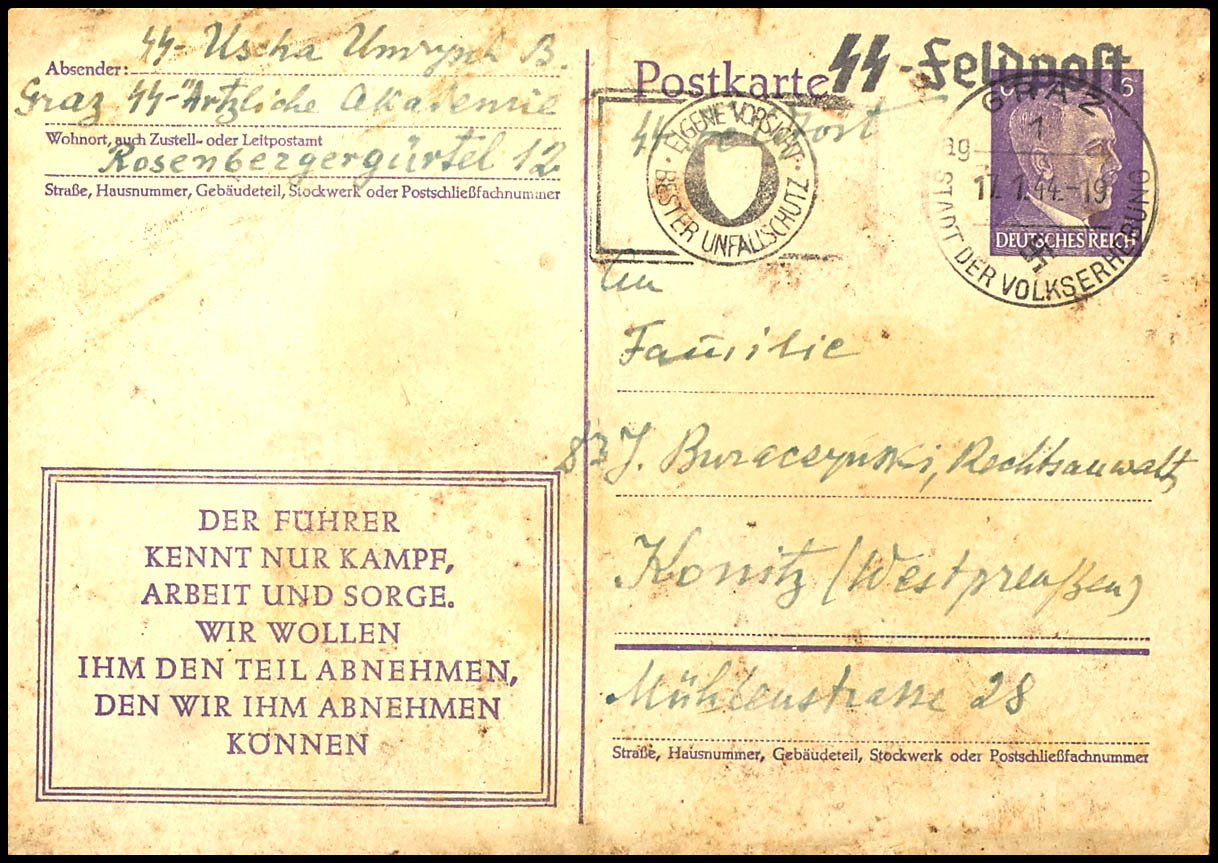 SS-Uscha Umrysh B.
Absender:
Graz SS-Ärtzliche Akademie
Wohnort, auch Zustell- oder Leitpostamt
Rosenbergergürtel 12
Straße, Hausnummer, Gebäudeteil, Stockwerk oder Postschließfachnummer
DER FÜHRER
KENNT NUR KAMPF,
ARBEIT UND SORGE.
WIR WOLLEN
IHM DEN TEIL ABNEHMEN,
DEN WIR IHM ABNEHMEN
KÖNNEN
Postkarte
SS-Feldpost
SS-Feldpost
EIGENE VORSICHT
BESTER UNFALLSCHUTZ
GRAZ
1
ag
17.1.44.-19
STADT DER VOLKSERHEBUNG
6
DEUTSCHES REICH
An
Familie
J. Buraczynski, Rechtsanwalt,
Konitz (Westpreußen)
Mühlenstrasse 28
Straße, Hausnummer, Gebäudeteil, Stockwerk oder Postschließfachnummer